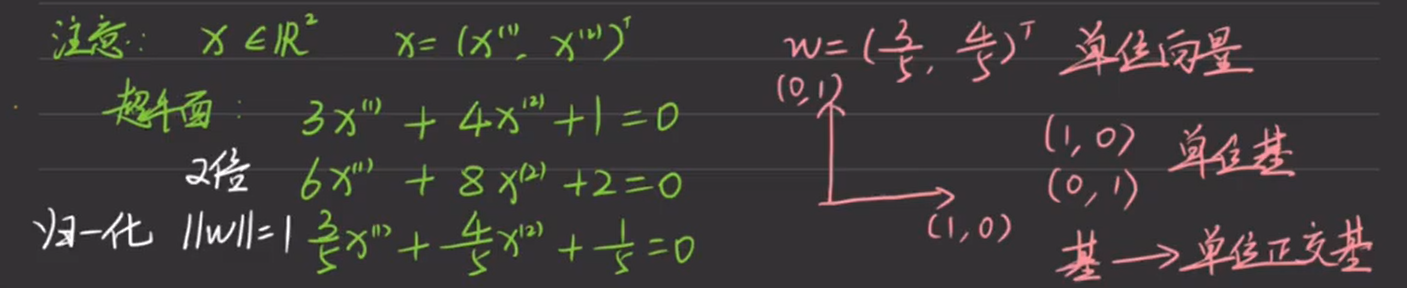 注意: x ∈ ℝ² x = (x⁽¹⁾, x⁽²⁾)ᵀ
超平面: 3x⁽¹⁾ + 4x⁽²⁾ + 1 = 0
2倍 6x⁽¹⁾ + 8x⁽²⁾ + 2 = 0
归一化 ||w|| = 1 3/5 x⁽¹⁾ + 4/5 x⁽²⁾ + 1/5 = 0
w = (3/5, 4/5)ᵀ 单位向量
(0,1)
(1,0)
(1,0) 单位基
(0,1)
基 → 单位正交基